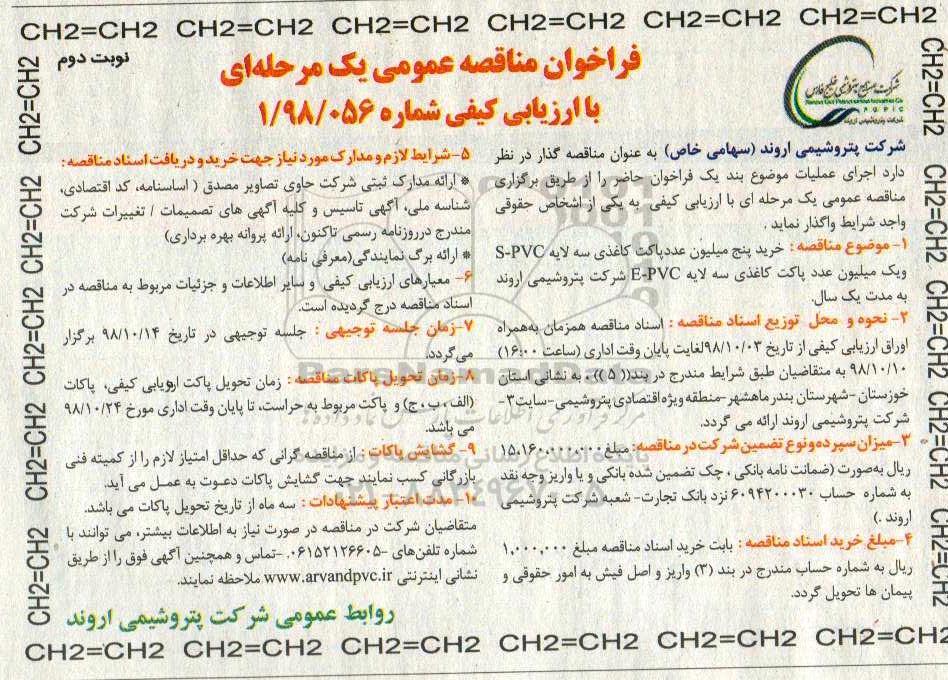 CH2=CH2 CH2=CH2 CH2=CH2 CH2=CH2 CH2=CH2 CH2=CH2
نوبت دوم
فراخوان مناقصه عمومی یک مرحله‌ای
با ارزیابی کیفی شماره ۱/۹۸/۰۵۶
شرکت صنایع پتروشیمی خلیج فارس
Persian Gulf Petrochemical Industries Co
P G P I C
شرکت پتروشیمی اروند
شرکت پتروشیمی اروند (سهامی خاص) به عنوان مناقصه گذار در نظر
دارد اجرای عملیات موضوع بند یک فراخوان حاضر را از طریق برگزاری
مناقصه عمومی یک مرحله ای با ارزیابی کیفی به یکی از اشخاص حقوقی
واجد شرایط واگذار نماید .
۱- موضوع مناقصه : خرید پنج میلیون عددپاکت کاغذی سه لایه S-PVC
ویک میلیون عدد پاکت کاغذی سه لایه E-PVC شرکت پتروشیمی اروند
به مدت یک سال.
۲- نحوه و محل توزیع اسناد مناقصه : اسناد مناقصه همزمان به‌همراه
اوراق ارزیابی کیفی از تاریخ ۹۸/۱۰/۰۳لغایت پایان وقت اداری (ساعت ۱۶:۰۰)
۹۸/۱۰/۱۰ به متقاضیان طبق شرایط مندرج در بند(( ۵ )) ، به نشانی استان
خوزستان -شهرستان بندر ماهشهر-منطقه ویژه اقتصادی پتروشیمی-سایت۳-
شرکت پتروشیمی اروند ارائه می گردد.
۳-میزان سپرده ونوع تضمین شرکت در مناقصه: مبلغ ۱۵،۱۶۰،۰۰۰،۰۰۰
ریال به‌صورت (ضمانت نامه بانکی ، چک تضمین شده بانکی و یا واریز وجه نقد
به شماره حساب ۶۰۹۴۲۰۰۰۳۰ نزد بانک تجارت- شعبه شرکت پتروشیمی
اروند .)
۴-مبلغ خرید اسناد مناقصه : بابت خرید اسناد مناقصه مبلغ ۱,۰۰۰,۰۰۰
ریال به شماره حساب مندرج در بند (۳) واریز و اصل فیش به امور حقوقی و
پیمان ها تحویل گردد.
۵-شرایط لازم و مدارک مورد نیاز جهت خرید و دریافت اسناد مناقصه:
* ارائه مدارک ثبتی شرکت حاوی تصاویر مصدق ( اساسنامه، کد اقتصادی،
شناسه ملی، آگهی تاسیس و کلیه آگهی های تصمیمات / تغییرات شرکت
مندرج درروزنامه رسمی تاکنون، ارائه پروانه بهره برداری)
* ارائه برگ نمایندگی(معرفی نامه)
۶- معیارهای ارزیابی کیفی و سایر اطلاعات و جزئیات مربوط به مناقصه در
اسناد مناقصه درج گردیده است.
۷-زمان جلسه توجیهی : جلسه توجیهی در تاریخ ۹۸/۱۰/۱۴ برگزار
می‌گردد.
۸-زمان تحویل پاکات مناقصه : زمان تحویل پاکت ارزیابی کیفی، پاکات
(الف ، ب ، ج) و پاکت مربوط به حراست، تا پایان وقت اداری مورخ ۹۸/۱۰/۲۴
می باشد.
۹- گشایش پاکات : از مناقصه گرانی که حداقل امتیاز لازم را از کمیته فنی
بازرگانی کسب نمایند جهت گشایش پاکات دعوت به عمــل می آید.
۱۰-مدت اعتبار پیشنهادات : سه ماه از تاریخ تحویل پاکات می باشد.
متقاضیان شرکت در مناقصه در صورت نیاز به اطلاعات بیشتر، می توانند با
شماره تلفن‌های ۰۶۱۵۲۱۲۶۶۰۵- .-تماس و همچنین آگهی فوق را از طریق
نشانی اینترنتی www.arvandpvc.ir ملاحظه نمایند.
روابط عمومی شرکت پتروشیمی اروند
CH2=CH2 CH2=CH2 CH2=CH2 CH2=CH2 CH2=CH2 CH2=CH2
CH2=CH2 CH2=CH2 CH2=CH2 CH2=CH2 CH2=CH2
CH2=CH2 CH2=CH2 CH2=CH2 CH2=CH2 CH2=CH2